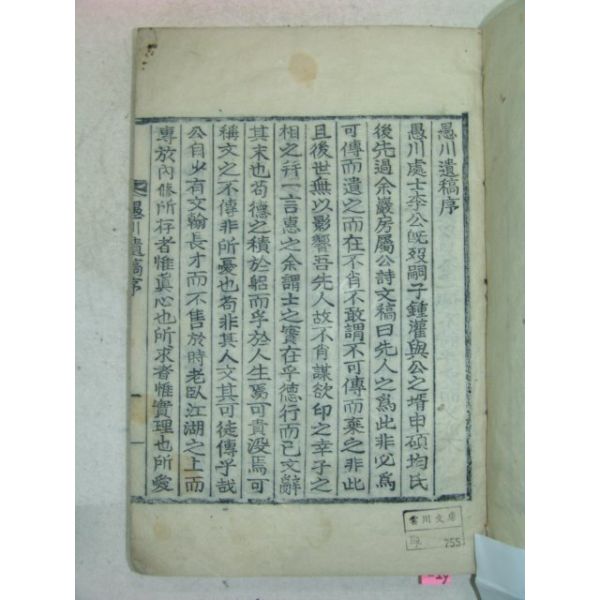 愚川遺稿序
愚川處士李公旣歿嗣子鍾灌與公之壻申碩均氏
後先過余嚴房屬公詩文稿曰先人之爲此非必爲
可傳而遺之而在不肖不敢謂不可傳而棄之非此
且後世無以影響吾先人故不肖謀欲印之幸子之
相之 一言惠之余謂士之實在乎德行而已文辭
其末也苟德之積於躬而孚於人生焉可貴沒焉可
稱文之不傳非所憂也苟非其人文其可徒傳乎哉
公自少有文翰長才而不售於時老臥江湖之上而
專於內修所存者惟眞心也所求者惟實理也所愛
愚川遺稿序
一
文庫
255